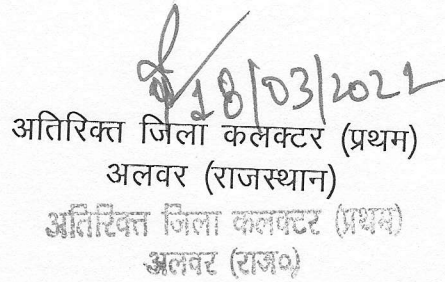 18/03/2022
अतिरिक्त जिला कलक्टर (प्रथम)
अलवर (राजस्थान)
अतिरिक्त जिला कलक्टर (प्रथम)
अलवर (राज०)